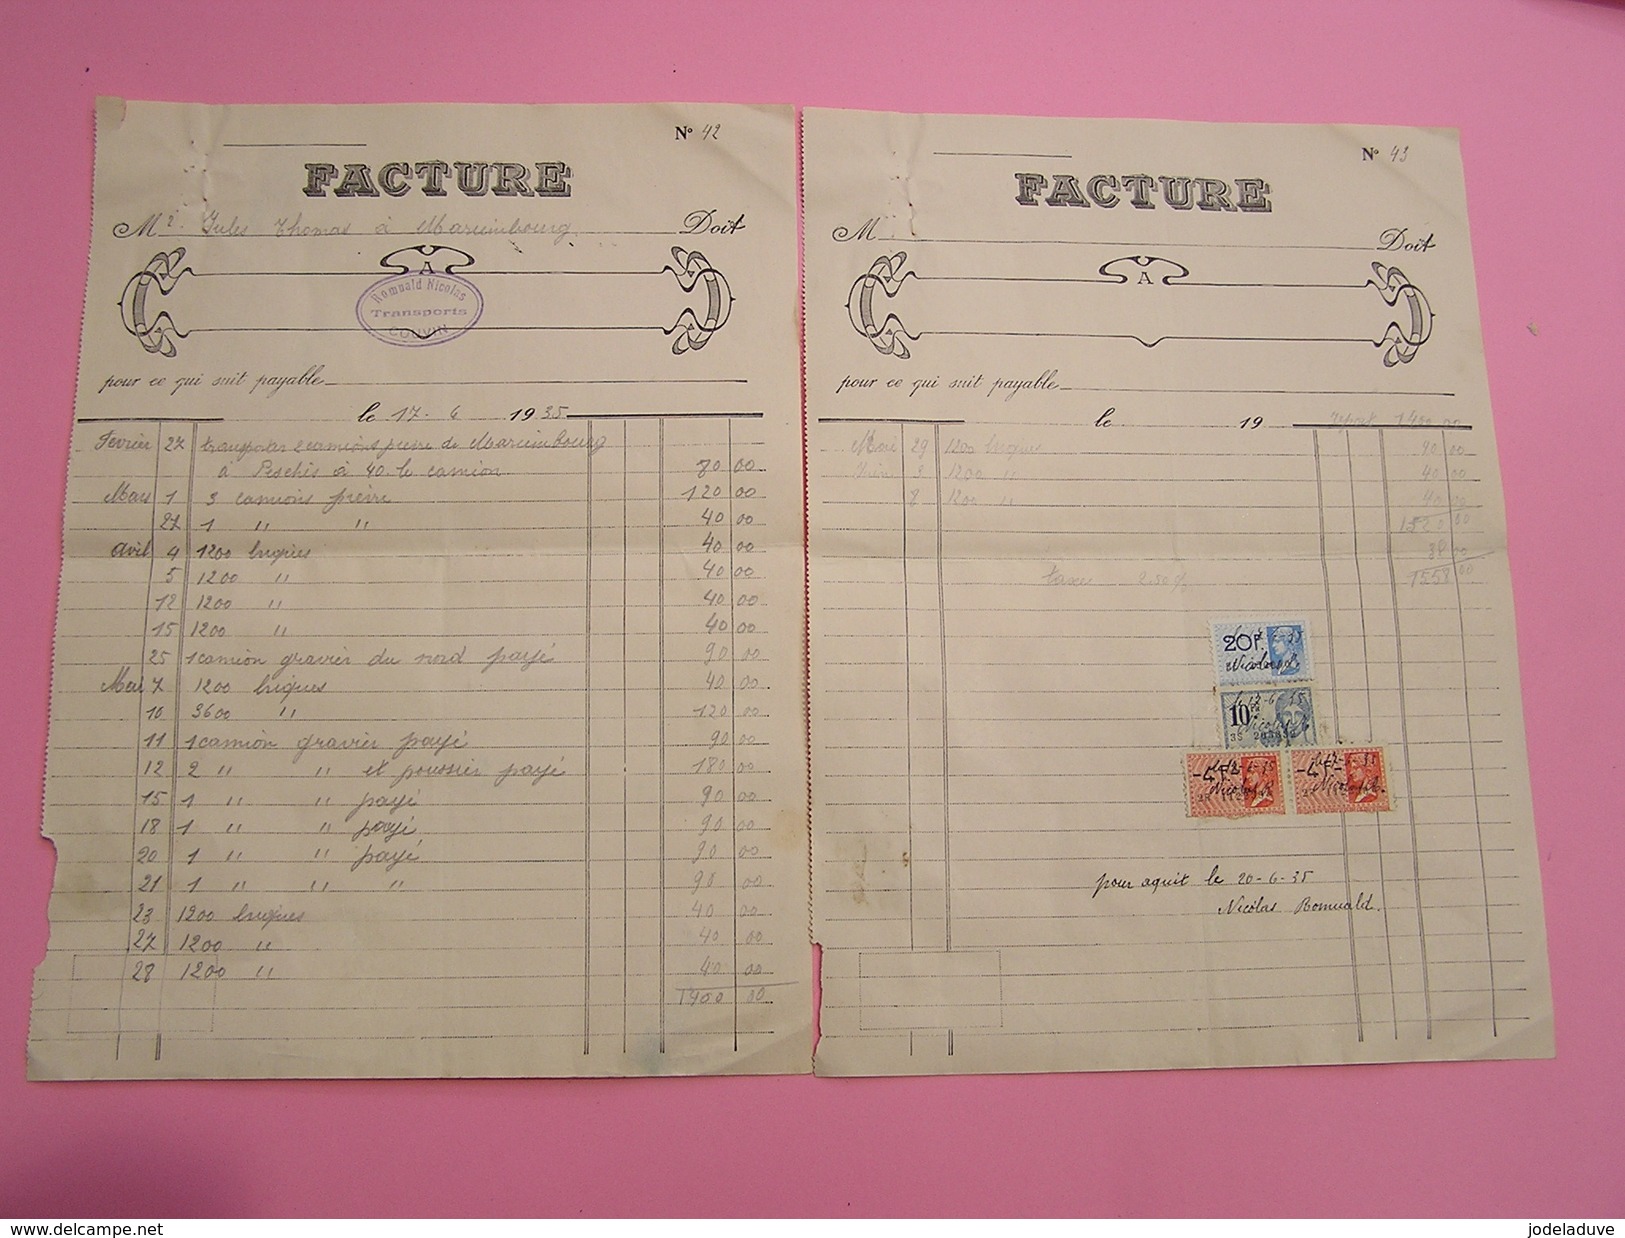 N° 42
FACTURE
Mr. Jules Thomas à Mariembourg Doit
A
Romuald Nicolas
Transports
COUVIN
pour ce qui suit payable
le 17-6 1935
Fevrier 27 transporter 2 camions pierre de Mariembourg
à Pesches à 40 le camion 80 00
Mars 1 3 camions pierre 120 00
27 1 " " 40 00
avril 4 1200 briques 40 00
5 1200 " 40 00
12 1200 " 40 00
15 1200 " 40 00
25 1 camion gravier du nord payé 90 00
Mai 7 1200 briques 40 00
10 3600 " 120 00
11 1 camion gravier payé 90 00
12 2 " " et poussier payé 180 00
15 1 " " payé 90 00
18 1 " " payé 90 00
20 1 " " payé 90 00
21 1 " " " 90 00
23 1200 briques 40 00
27 1200 " 40 00
28 1200 " 40 00
1400 00
N° 43
FACTURE
M Doit
A
pour ce qui suit payable
le 19 report 1400 00
Mai 29 1200 briques 40 00
Juin 3 1200 " 40 00
8 1200 " 40 00
1520 00
38 00
taxe 2.50 % 1558 00
20F.
10
-4F-
-4F-
pour aquit le 20-6-35
Nicolas Romuald.
www.delcampe.net
jodeladuve